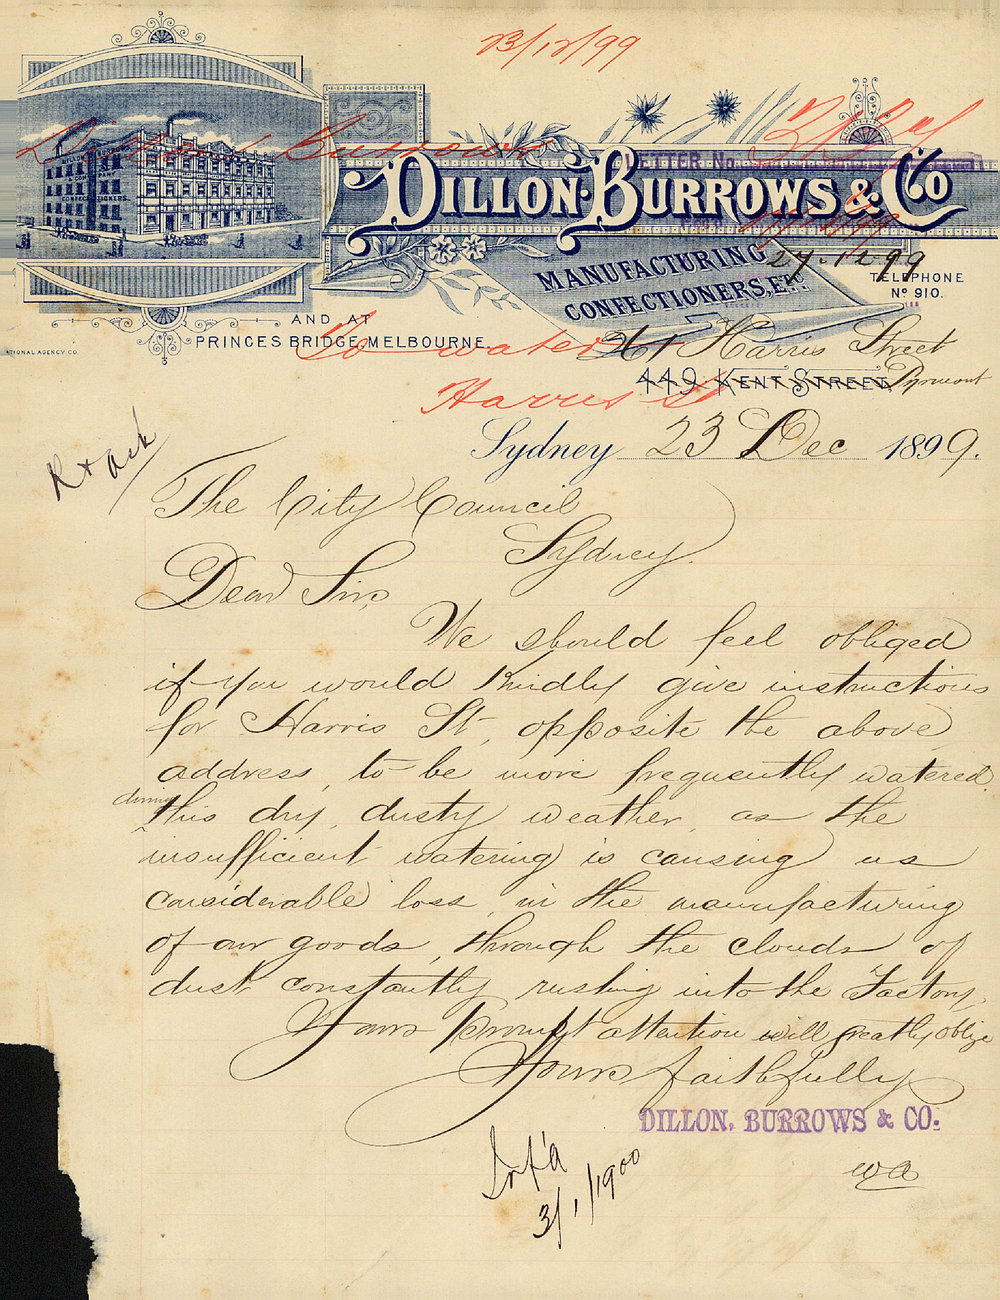 23/12/99
Dillon Burrows
LETTER No.
DILLON·BURROWS & Co
MANUFACTURING
CONFECTIONERS, ETC.
27.12.99
TELEPHONE
No 910.
AND AT
PRINCES BRIDGE, MELBOURNE.
To water
Harris St
361 Harris Street
449 KENT STREET Pyrmont
Sydney 23 Dec 1899.
R & ack
The City Council
Sydney.
Dear Sir,
We should feel obliged
if you would kindly give instructions
for Harris St, opposite the above
address, to be more frequently watered
during
this dry, dusty weather, as the
insufficient watering is causing us
considerable loss, in the manufacturing
of our goods, through the clouds of
dust constantly rushing into the Factory.
Your prompt attention will greatly oblige
Yours faithfully
DILLON, BURROWS & CO.
Inf'd
3/1/1900